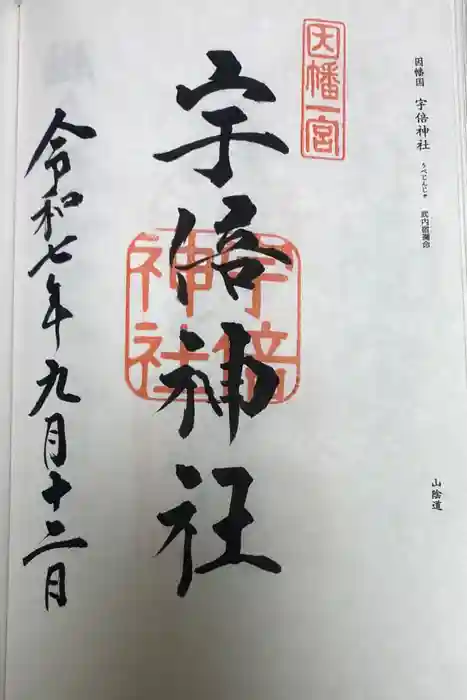 因幡国 宇倍神社 うべじんじゃ 武内宿禰命
山陰道
因幡一宮
宇倍神社
宇倍神社
令和七年九月十二日